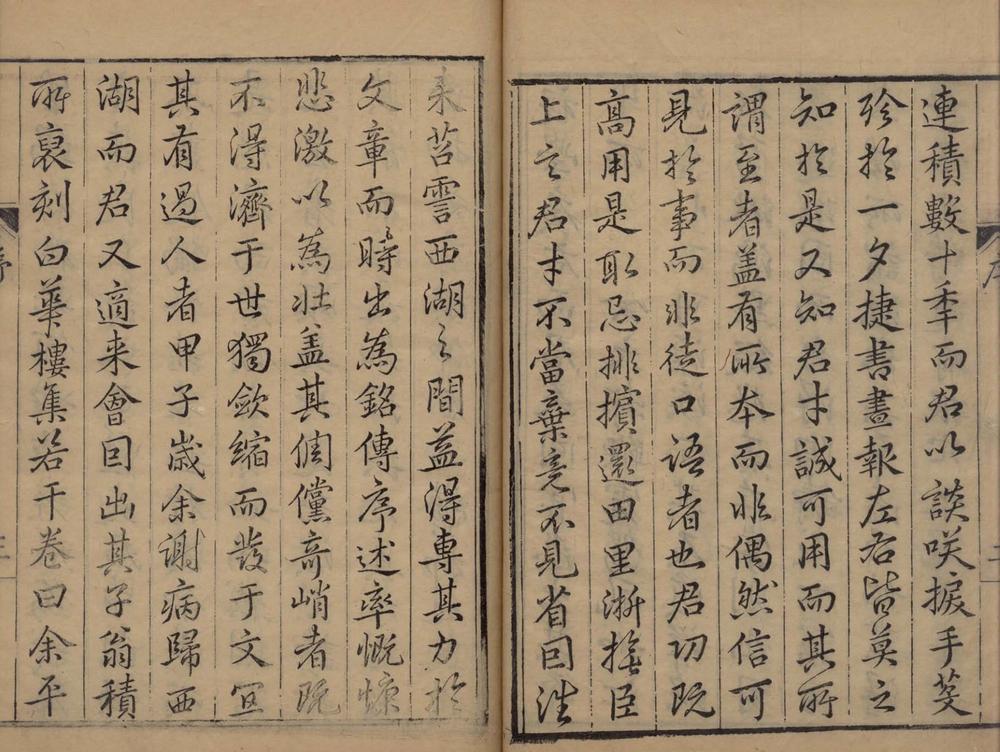 連積數十季而君以談咲捩手芟
殄於一夕捷書晝報左右皆莫之
知於是又知君才誠可用而其所
謂至者盖有所本而非偶然信可
見於事而非徒口語者也君功既
高用是取忌排擯還田里浙撫臣
上言君才不當棄竟不見省回往
来苕霅西湖之間益得專其力於
文章而時出為銘傳序述率慨慷
悲激以為壮盖其倜儻奇峭者既
不得濟于世獨歛縮而發于文宜
其有過人者甲子歲余謝病歸西
湖而君又適来會因出其子翁積
所裒刻白華樓集若干卷曰余平
序